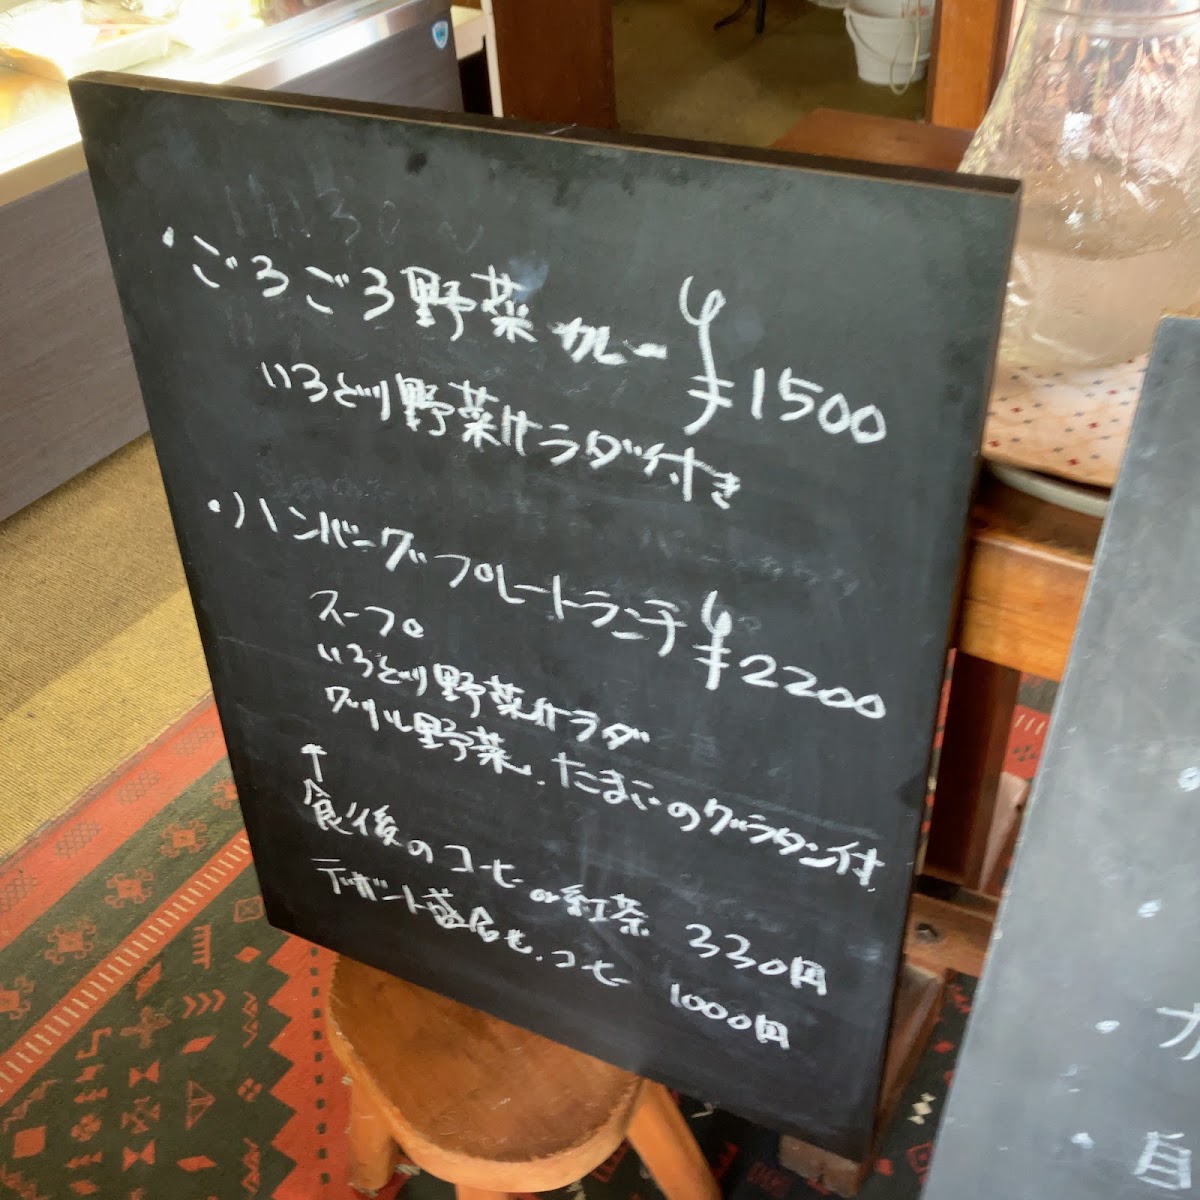 ・ごろごろ野菜カレー ¥1500
いろどり野菜サラダ付き
・ハンバーグプレートランチ ¥2200
スープ
いろどり野菜サラダ
グリル野菜、たまごのグラタン付
↑
食後のコーヒーor紅茶 330円
デザート盛合せ、コーヒー 1000円